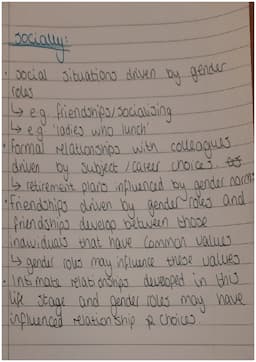 socially:
• social situations driven by gender
roles
↳ e.g. friendships/socialising
↳ e.g. 'ladies who lunch'
• formal relationships with colleagues
driven by subject/career choices.
↳ retirement plans influenced by gender norms
• Friendships driven by gender roles and
friendships develop between those
individuals that have common values
↳ gender roles may influence these values
• Intimate relationships developed in this
life stage and gender roles may have
influenced relationship & choices.